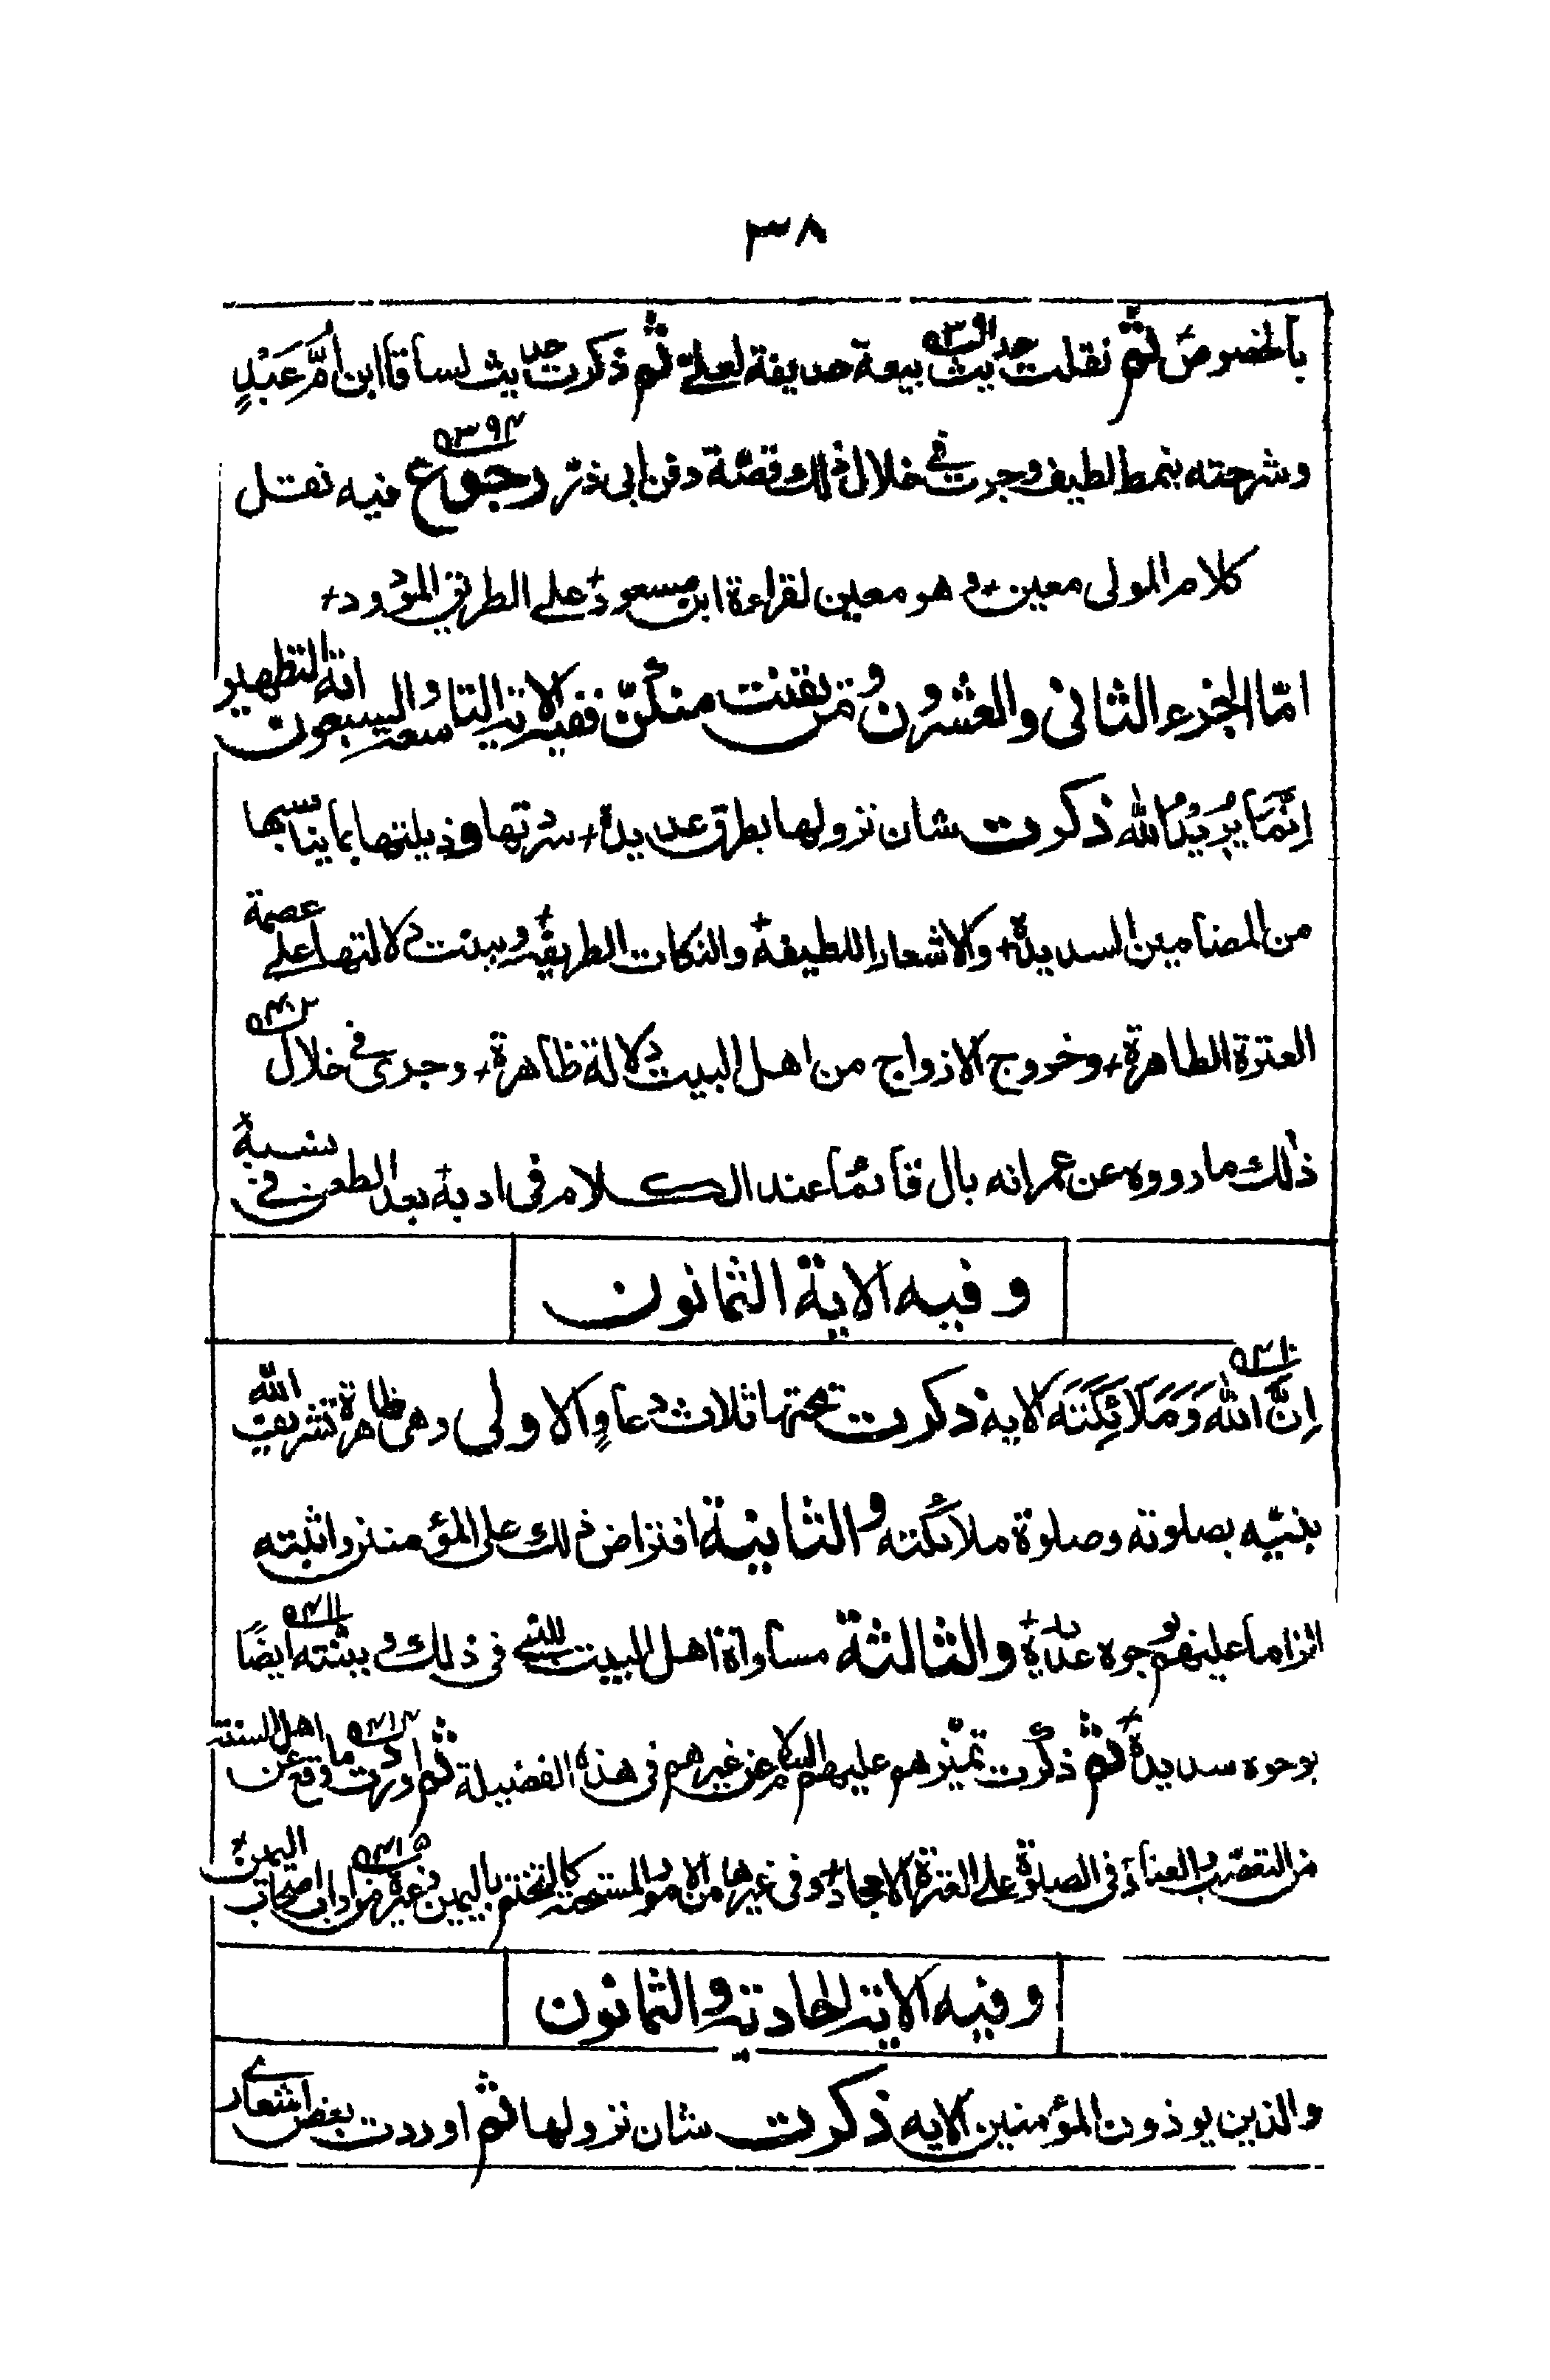 ٣٨
بالخصوص ثم نقلت حديث بيعة حذيفة لعليّ ثم ذكرت حديث لساقا ابن امّ عَبْدٍ
وشرحته بنمط لطيف وجرت في خلال ذلك قصّة دفن ابي ذرّ رجوع فيه نقل
كلام المولى معين+ وهو معين لقراءة ابن مسعود+ على الطريق المودود+
امّا الجزء الثانى والعشرون ومن يقنت منكنّ ففيه الاية التاسعة والسبعون اية التطهير
اِنَّمَا يُرِيْدُ الله ذكرت شان نزولها بطرق عديدة+ سردتها وذيلتها بما يناسبها
من المضامين السديدة+ والاشعار اللطيفة+ والنكات الطريفة+ وبينت دلالتها على عصمة
العترة الطاهرة+ وخروج الازواج من اهل البيت دلالة ظاهرة+ وجرى في خلال
ذلك ما رووه عن عمر انه بال قائما عند الكلام فى ادبه بعد الطعن في نسبه+
وفيه الاية الثمانون
اِنَّ اللهَ وَمَلَائِكَتَه الاية ذكرت تحتها ثلاث دعاوٍ الاولى وهى ظاهرة تشريف الله
بنبيّه بصلوته وصلوة ملائكته والثانية افتراض ذلك على المؤمنين واثبته
الزاما عليهم بوجوه عديدة+ والثالثة مساواة اهل البيت للنبي فى ذلك وبينته ايضًا
بوجوه سديدة+ ثم ذكرت تميّزهم عليهم السلام عن غيرهم فى هذه الفضيلة ثم اوردت ما وقع عن اهل السنة
من التعصّب والعناد فى الصلوة على العترة الامجاد+ وفى غيرها من الامور المستحبة كالتختم باليمين وغيره من اداب اصحاب اليمين+
وفيه الاية الحادية والثمانون
والذين يوذون المؤمنين الاية ذكرت شان نزولها ثم اوردت بعض اشعاري